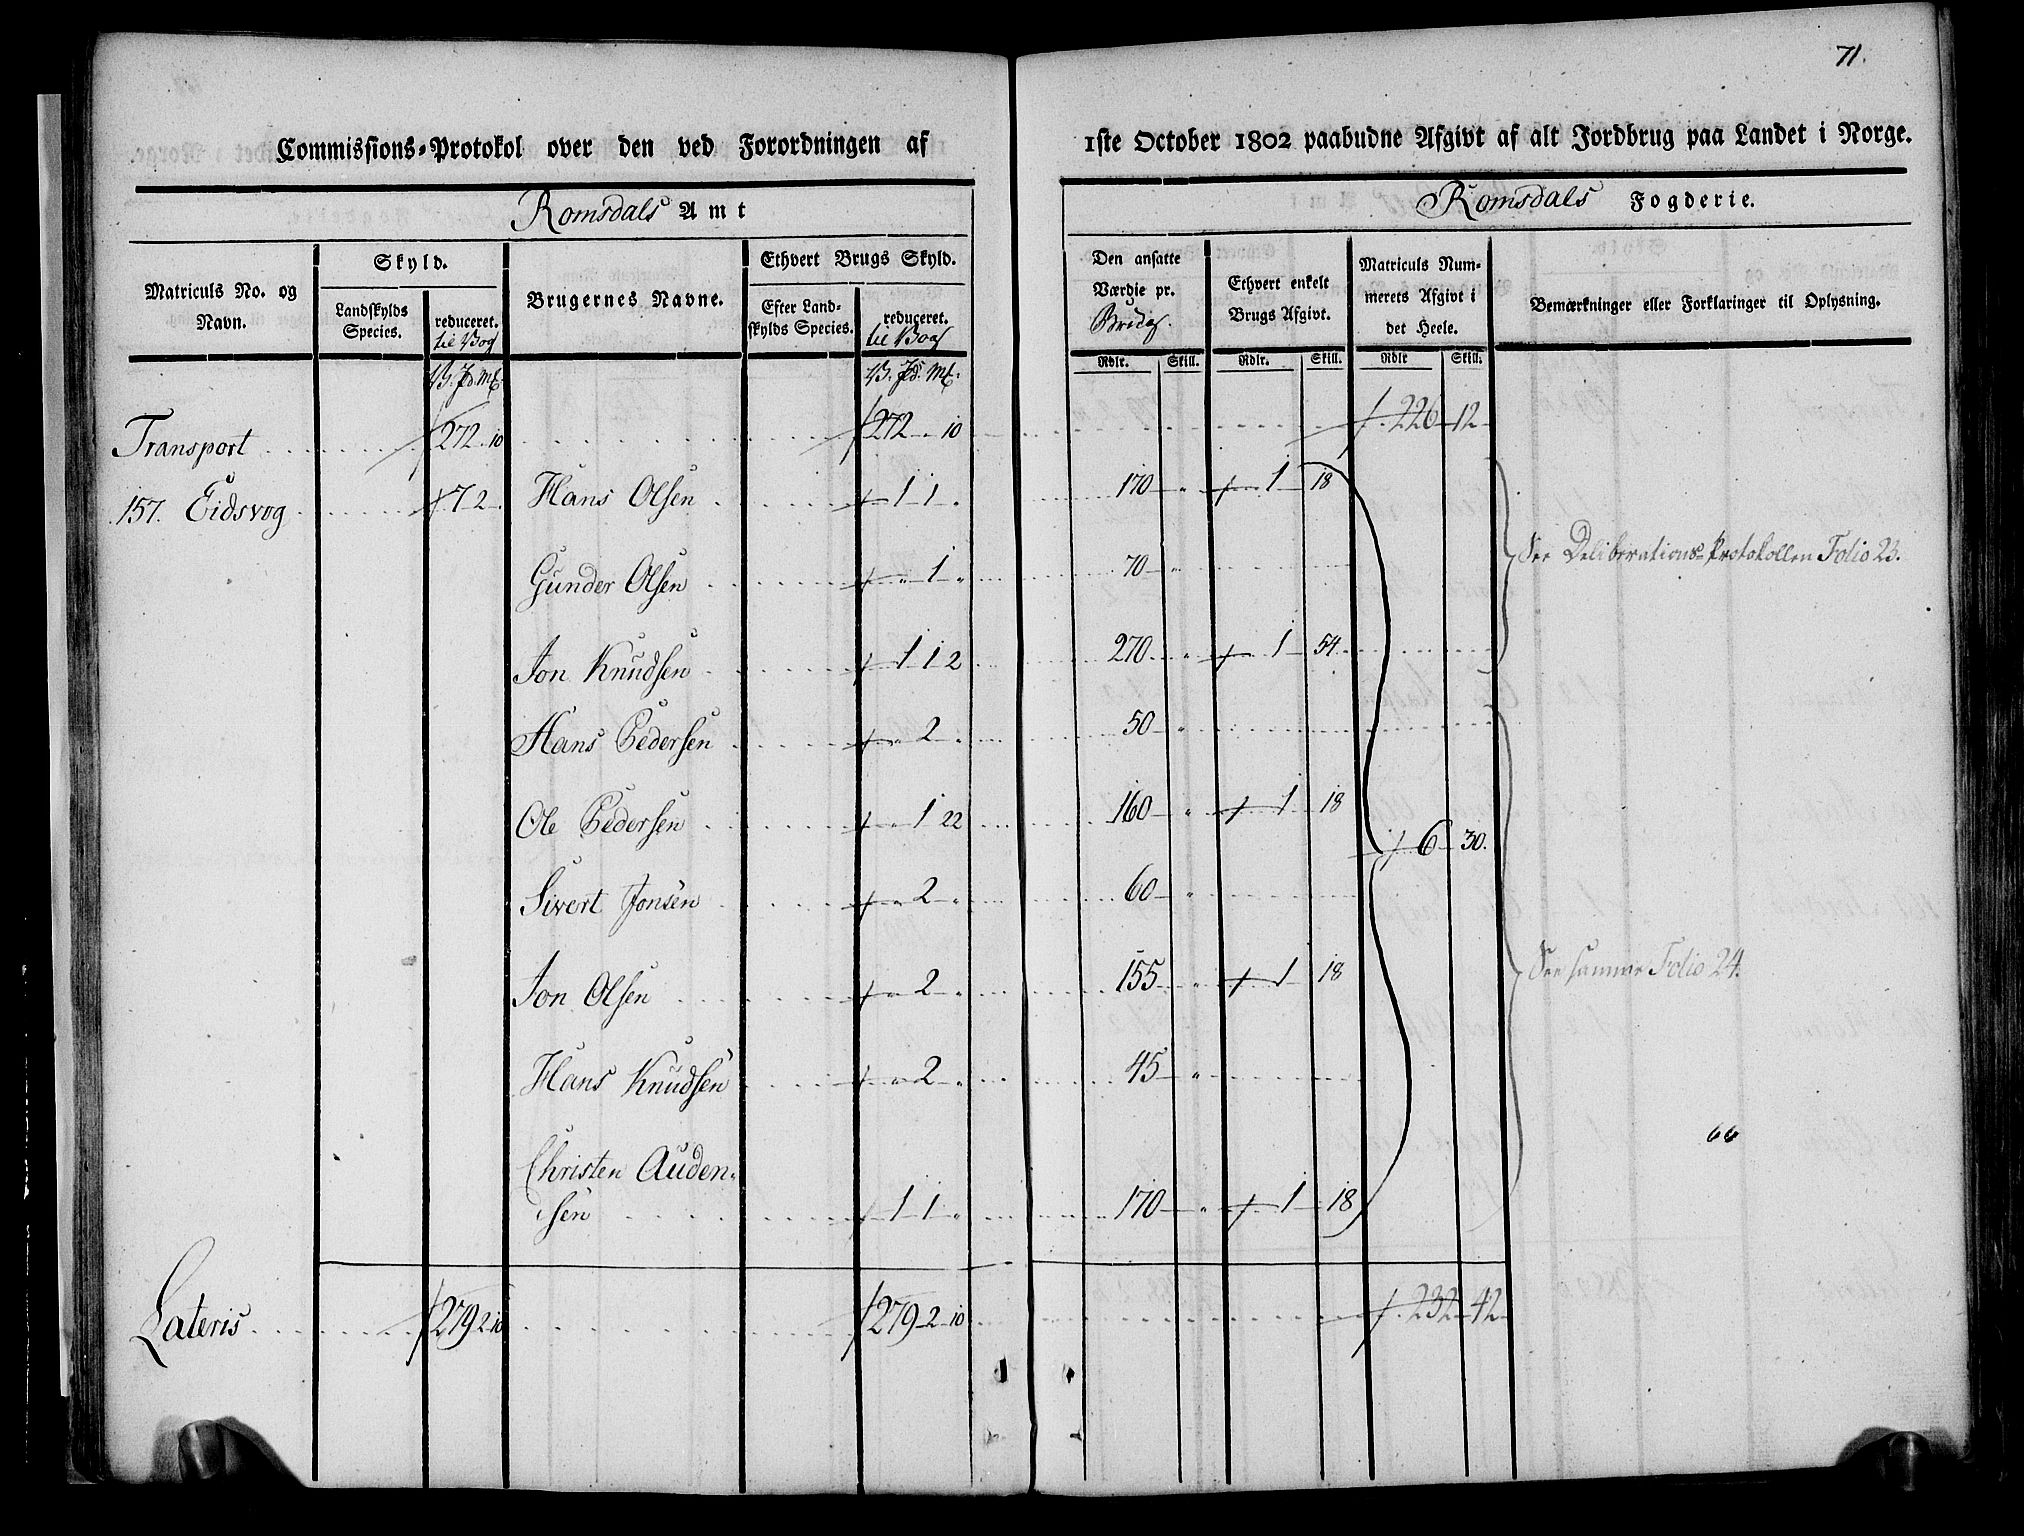 71.
Commissions-Protokol over den ved Forordningen af 1ste October 1802 paabudne Afgivt af alt Jordbrug paa Landet i Norge.
Romsdals Amt
Romsdals Fogderie.
Matriculs No. og Navn.
Skyld.
Landskylds Species.
reduceret. til Vog
Brugernes Navne.
Ethvert Brugs Skyld.
Efter Landskylds Species.
reduceret. til Vog
Den ansatte Værdie pr. Brug.
Ethvert enkelt Brugs Afgivt.
Matriculs Nummerets Afgivt i det Heele.
Bemærkninger eller Forklaringer til Oplysning.
V. Pd. Mk. V. Pd. Mk. Rdlr. Skill. Rdlr. Skill. Rdlr Skill.
Transport 272 " 10 272 " 10 226 12
157. Eidsvog 7 2 " Hans Olsen 1 1 " 170 " 1 18
Gunder Olsen " 1 " 70 "
See Deliberations-Protokollen Folio 23.
Jon Knudsen 1 1 2 270 " 1 54
Hans Pedersen " 2 " 50 "
Ole Pedersen " 1 22 160 " 1 18
6 30.
Sivert Jonsen " 2 " 60 "
Jon Olsen " 2 " 155 " 1 18
See samme Folio 24.
Hans Knudsen " 2 " 45 "
Christen Auden-
sen 1 1 " 170 " 1 18
Lateris 279 2 10 279 2 10 232 42